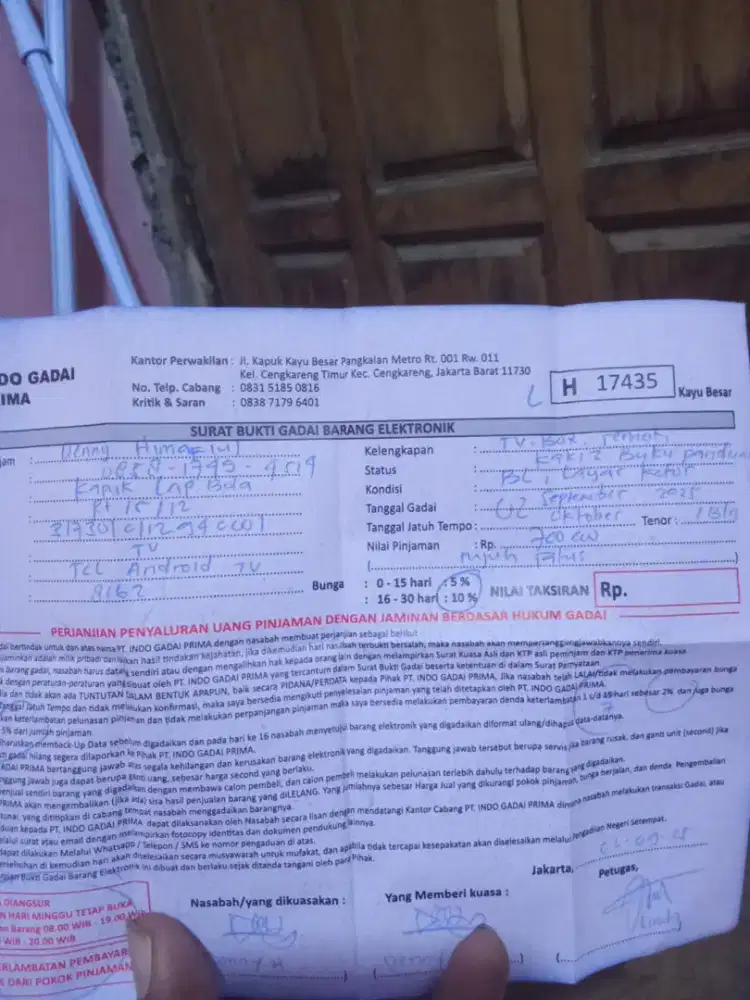 DO GADAI
IMA
Kantor Perwakilan : Jl. Kapuk Kayu Besar Pangkalan Metro Rt. 001 Rw. 011
Kel. Cengkareng Timur Kec. Cengkareng, Jakarta Barat 11730
No. Telp. Cabang : 0831 5185 0816
Kritik & Saran : 0838 7179 6401
H 17435 Kayu Besar
SURAT BUKTI GADAI BARANG ELEKTRONIK
jam : Denny
RT 15/12
TV
TCL Android TV
Kelengkapan : TV. Box. Remot
Kaki2 Buku pandua
Status :
Kondisi : Layar Kotor
Tanggal Gadai : 02 September 2025
Tanggal Jatuh Tempo : Oktober Tenor :
Nilai Pinjaman : Rp. 700
Tujuh Ratus
Bunga : 0 - 15 hari : 5 %
: 16 - 30 hari : 10 %
NILAI TAKSIRAN Rp.
PERJANJIAN PENYALURAN UANG PINJAMAN DENGAN JAMINAN BERDASAR HUKUM GADAI
bertindak untuk dan atas nama PT. INDO GADAI PRIMA dengan nasabah membuat perjanjian sebagai berikut
adalah milik pribadi dan bukan hasil tindakan kejahatan, jika dikemudian hari nasabah terbukti bersalah, maka nasabah akan mempertanggungjawabkannya sendiri.
barang gadai, nasabah harus datang sendiri atau dengan mengalihkan hak kepada orang lain dengan melampirkan Surat Kuasa Asli dan KTP asli peminjam dan KTP penerima kuasa
dengan peraturan-peraturan yang dibuat oleh PT. INDO GADAI PRIMA yang tercantum dalam Surat Bukti Gadai beserta ketentuan di dalam Surat Pernyataan.
dan tidak akan ada TUNTUTAN DALAM BENTUK APAPUN, baik secara PIDANA/PERDATA kepada Pihak PT. INDO GADAI PRIMA. Jika nasabah telah LALAI/tidak melakukan pembayaran bunga
Tanggal Jatuh Tempo dan tidak melakukan konfirmasi, maka saya bersedia mengikuti penyelesaian pinjaman yang telah ditetapkan oleh PT. INDO GADAI PRIMA.
keterlambatan pelunasan pinjaman dan tidak melakukan perpanjangan pinjaman maka saya bersedia melakukan pembayaran denda keterlambatan 1 s/d hari sebesar 2% dan juga bunga
5% dari jumlah pinjaman.
memback-Up Data sebelum digadaikan dan pada hari ke 16 nasabah menyetujui barang elektronik yang digadaikan diformat ulang/dihapus data-datanya.
gadai hilang segera dilaporkan ke Pihak PT. INDO GADAI PRIMA.
GADAI PRIMA bertanggung jawab atas segala kehilangan dan kerusakan barang elektronik yang digadaikan. Tanggung jawab tersebut berupa servis jika barang rusak, dan ganti unit (second) jika
jawab juga dapat berupa ganti uang, sebesar harga second yang berlaku.
menjual sendiri barang yang digadaikan dengan membawa calon pembeli, dan calon pembeli melakukan pelunasan terlebih dahulu terhadap barang yang digadaikan.
PRIMA akan mengembalikan (jika ada) sisa hasil penjualan barang yang diLELANG. Yang jumlahnya sebesar Harga Jual yang dikurangi pokok pinjaman, bunga berjalan, dan denda. Pengembalian
tunai, yang dititipkan di cabang tempat nasabah menggadaikan barangnya.
kepada PT. INDO GADAI PRIMA dapat dilaksanakan oleh Nasabah secara lisan dengan mendatangi Kantor Cabang PT. INDO GADAI PRIMA dimana nasabah melakukan transaksi Gadai, atau
surat atau email dengan melampirkan fotocopy identitas dan dokumen pendukung lainnya.
dapat dilakukan Melalui Whatsapp / Telepon / SMS ke nomor pengaduan di atas.
perselisihan di kemudian hari akan diselesaikan secara musyawarah untuk mufakat, dan apabila tidak tercapai kesepakatan akan diselesaikan melalui Pengadilan Negeri Setempat.
Bukti Gadai Barang Elektronik ini dibuat dan berlaku sejak ditanda tangani oleh para Pihak.
Jakarta,
DIANGSUR
HARI MINGGU TETAP BUKA
Barang 08.00 WIB - 19.00 WIB
WIB - 20.00 WIB
ERLAMBATAN PEMBAYAR
DARI POKOK PINJAMAN
Nasabah/yang dikuasakan :
Yang Memberi kuasa :
Petugas,
Denny